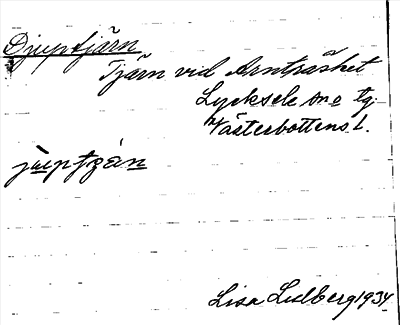 Djuptjärn
Tjärn vid Arnträsket
Lycksele sn o tg.
Västerbottens l.
juptzán
Lisa Lidberg 1934